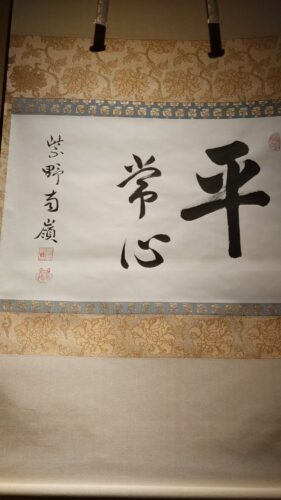 平
常心
紫野南嶺